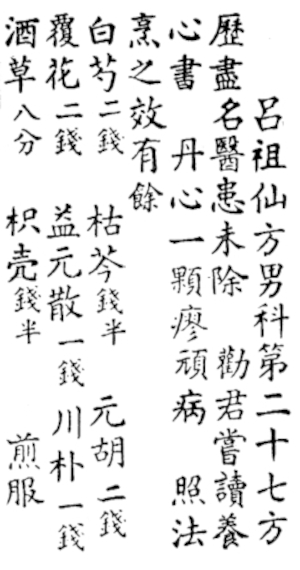 呂祖仙方男科第二十七方
歷盡名醫患未除 勸君嘗讀養
心書 丹心一顆療頑病 照法
烹之效有餘
白芍二錢 枯芩錢半 元胡二錢
覆花二錢 益元散一錢 川朴一錢
酒草八分 枳壳錢半 煎服